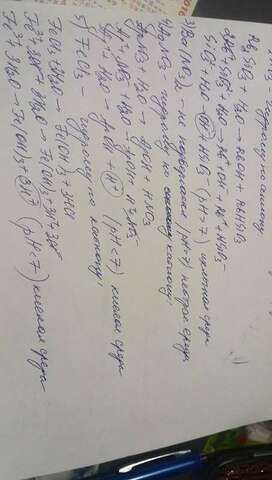 гидролиз по аниону
Rb2SiO3 + H2O → RbOH + RbHSiO3
2Rb⁺ + SiO3²⁻ + H2O → Rb⁺ + OH⁻ + Rb⁺ + HSiO3⁻
SiO3²⁻ + H2O → OH⁻ + HSiO3⁻ (pH > 7) щелочная среда
3) Ba(NO3)2 – не подвергается (pH = 7) нейтр. среда
4) AgNO3 гидролиз по катиону
AgNO3 + H2O → AgOH + HNO3
Ag⁺ + NO3⁻ + H2O → AgOH + H⁺ + NO3⁻
Ag⁺ + H2O → AgOH + H⁺ (pH < 7) кислая среда
5) FeCl3 – гидролиз по катиону
FeCl3 + 3H2O → Fe(OH)3 + 3HCl
Fe³⁺ + 3Cl⁻ + 3H2O → Fe(OH)3 + 3H⁺ + 3Cl⁻
Fe³⁺ + 3H2O → Fe(OH)3 + 3H⁺ (pH < 7) кислая среда